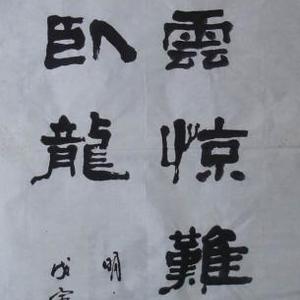 雲惊難
卧龍
明
戊寅